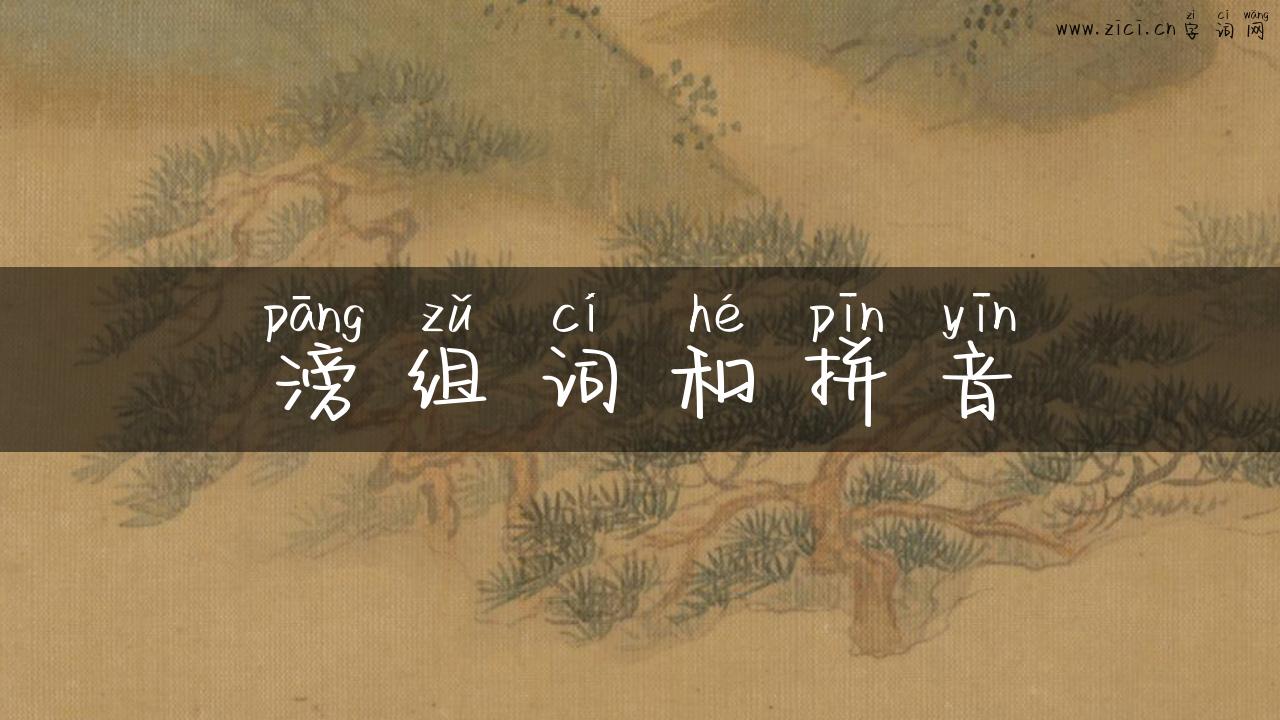 zì cí wǎng
www.zici.cn 字词网
pāng zǔ cí hé pīn yīn
滂组词和拼音